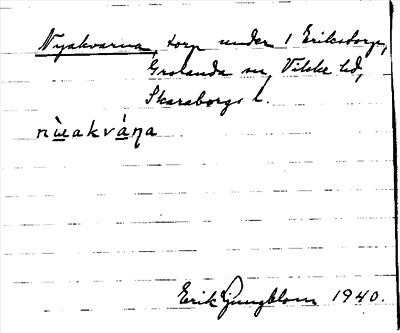 Nyakvarna, torp under 1 Erikstorp,
Grolanda sn, Vilske hd,
Skaraborgs l.
nùakvána
Erik Ljungblom 1940.